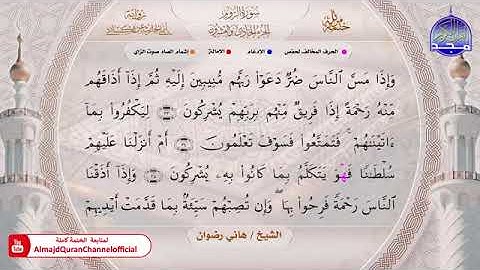 سُورَةُ الرُّومِ
الحرف المخالف لحفص
الإدغام
الإمالة
إشمام الصاد صوت الزاي
وَإِذَا مَسَّ النَّاسَ ضُرٌّ دَعَوْا رَبَّهُم مُّنِيبِينَ إِلَيْهِ ثُمَّ إِذَا أَذَاقَهُم
مِّنْهُ رَحْمَةً إِذَا فَرِيقٌ مِّنْهُم بِرَبِّهِمْ يُشْرِكُونَ ٣٣ لِيَكْفُرُوا بِمَا
ءَاتَيْنَٰهُمْ فَتَمَتَّعُوا فَسَوْفَ تَعْلَمُونَ ٣٤ أَمْ أَنزَلْنَا عَلَيْهِمْ
سُلْطَٰنًا فَهْوَ يَتَكَلَّمُ بِمَا كَانُوا بِهِ يُشْرِكُونَ ٣٥ وَإِذَا أَذَقْنَا
النَّاسَ رَحْمَةً فَرِحُوا بِهَا وَإِن تُصِبْهُمْ سَيِّئَةٌ بِمَا قَدَّمَتْ أَيْدِيهِمْ
الشيخ / هاني رضوان
لمتابعة الختمة كاملة
AlmajdQuranChannelofficial
YouTube